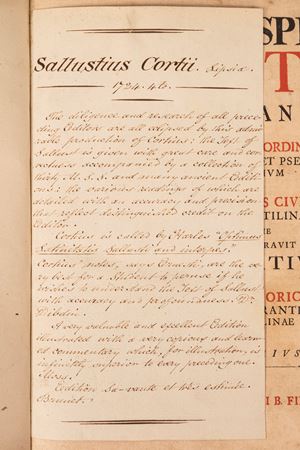 Sallustius Cortii. Lipsiæ
1724. 4to.
The diligence and research of all prece
ding Editors are all eclipsed by this admi
rable production of Cortius: the Text of
Sallust is given with great care and cor
rectness accompanied by a collection of
thirty M.S.S. and many ancient Editi
ons: the various readings of which are
detailed with an accuracy and precision
that reflect distinguished credit on the
Editor.
Cortius is called by Harles "Optimus
Latinitatis Sallustii and interpres"
Cortius' notes, says Ernesti, are the ve
ry best for a Student to peruse if he
wishes to understand the Text of Sallust
with accuracy and profoundness. Dr.
Dibdin.
A very valuable and excellent Edition
illustrated with a very copious and learn
ed commentary which, for illustration, is
infinitely superior to every preceding one.
Edition Sa-vante et très estimée
Brunet.
SP
T
AN
ORDIN
CT PSE
IVM
S CIV
TILINA
E
RAVIT
TIV
ORIC
RANTI
LINAE
IVS
I B. FI